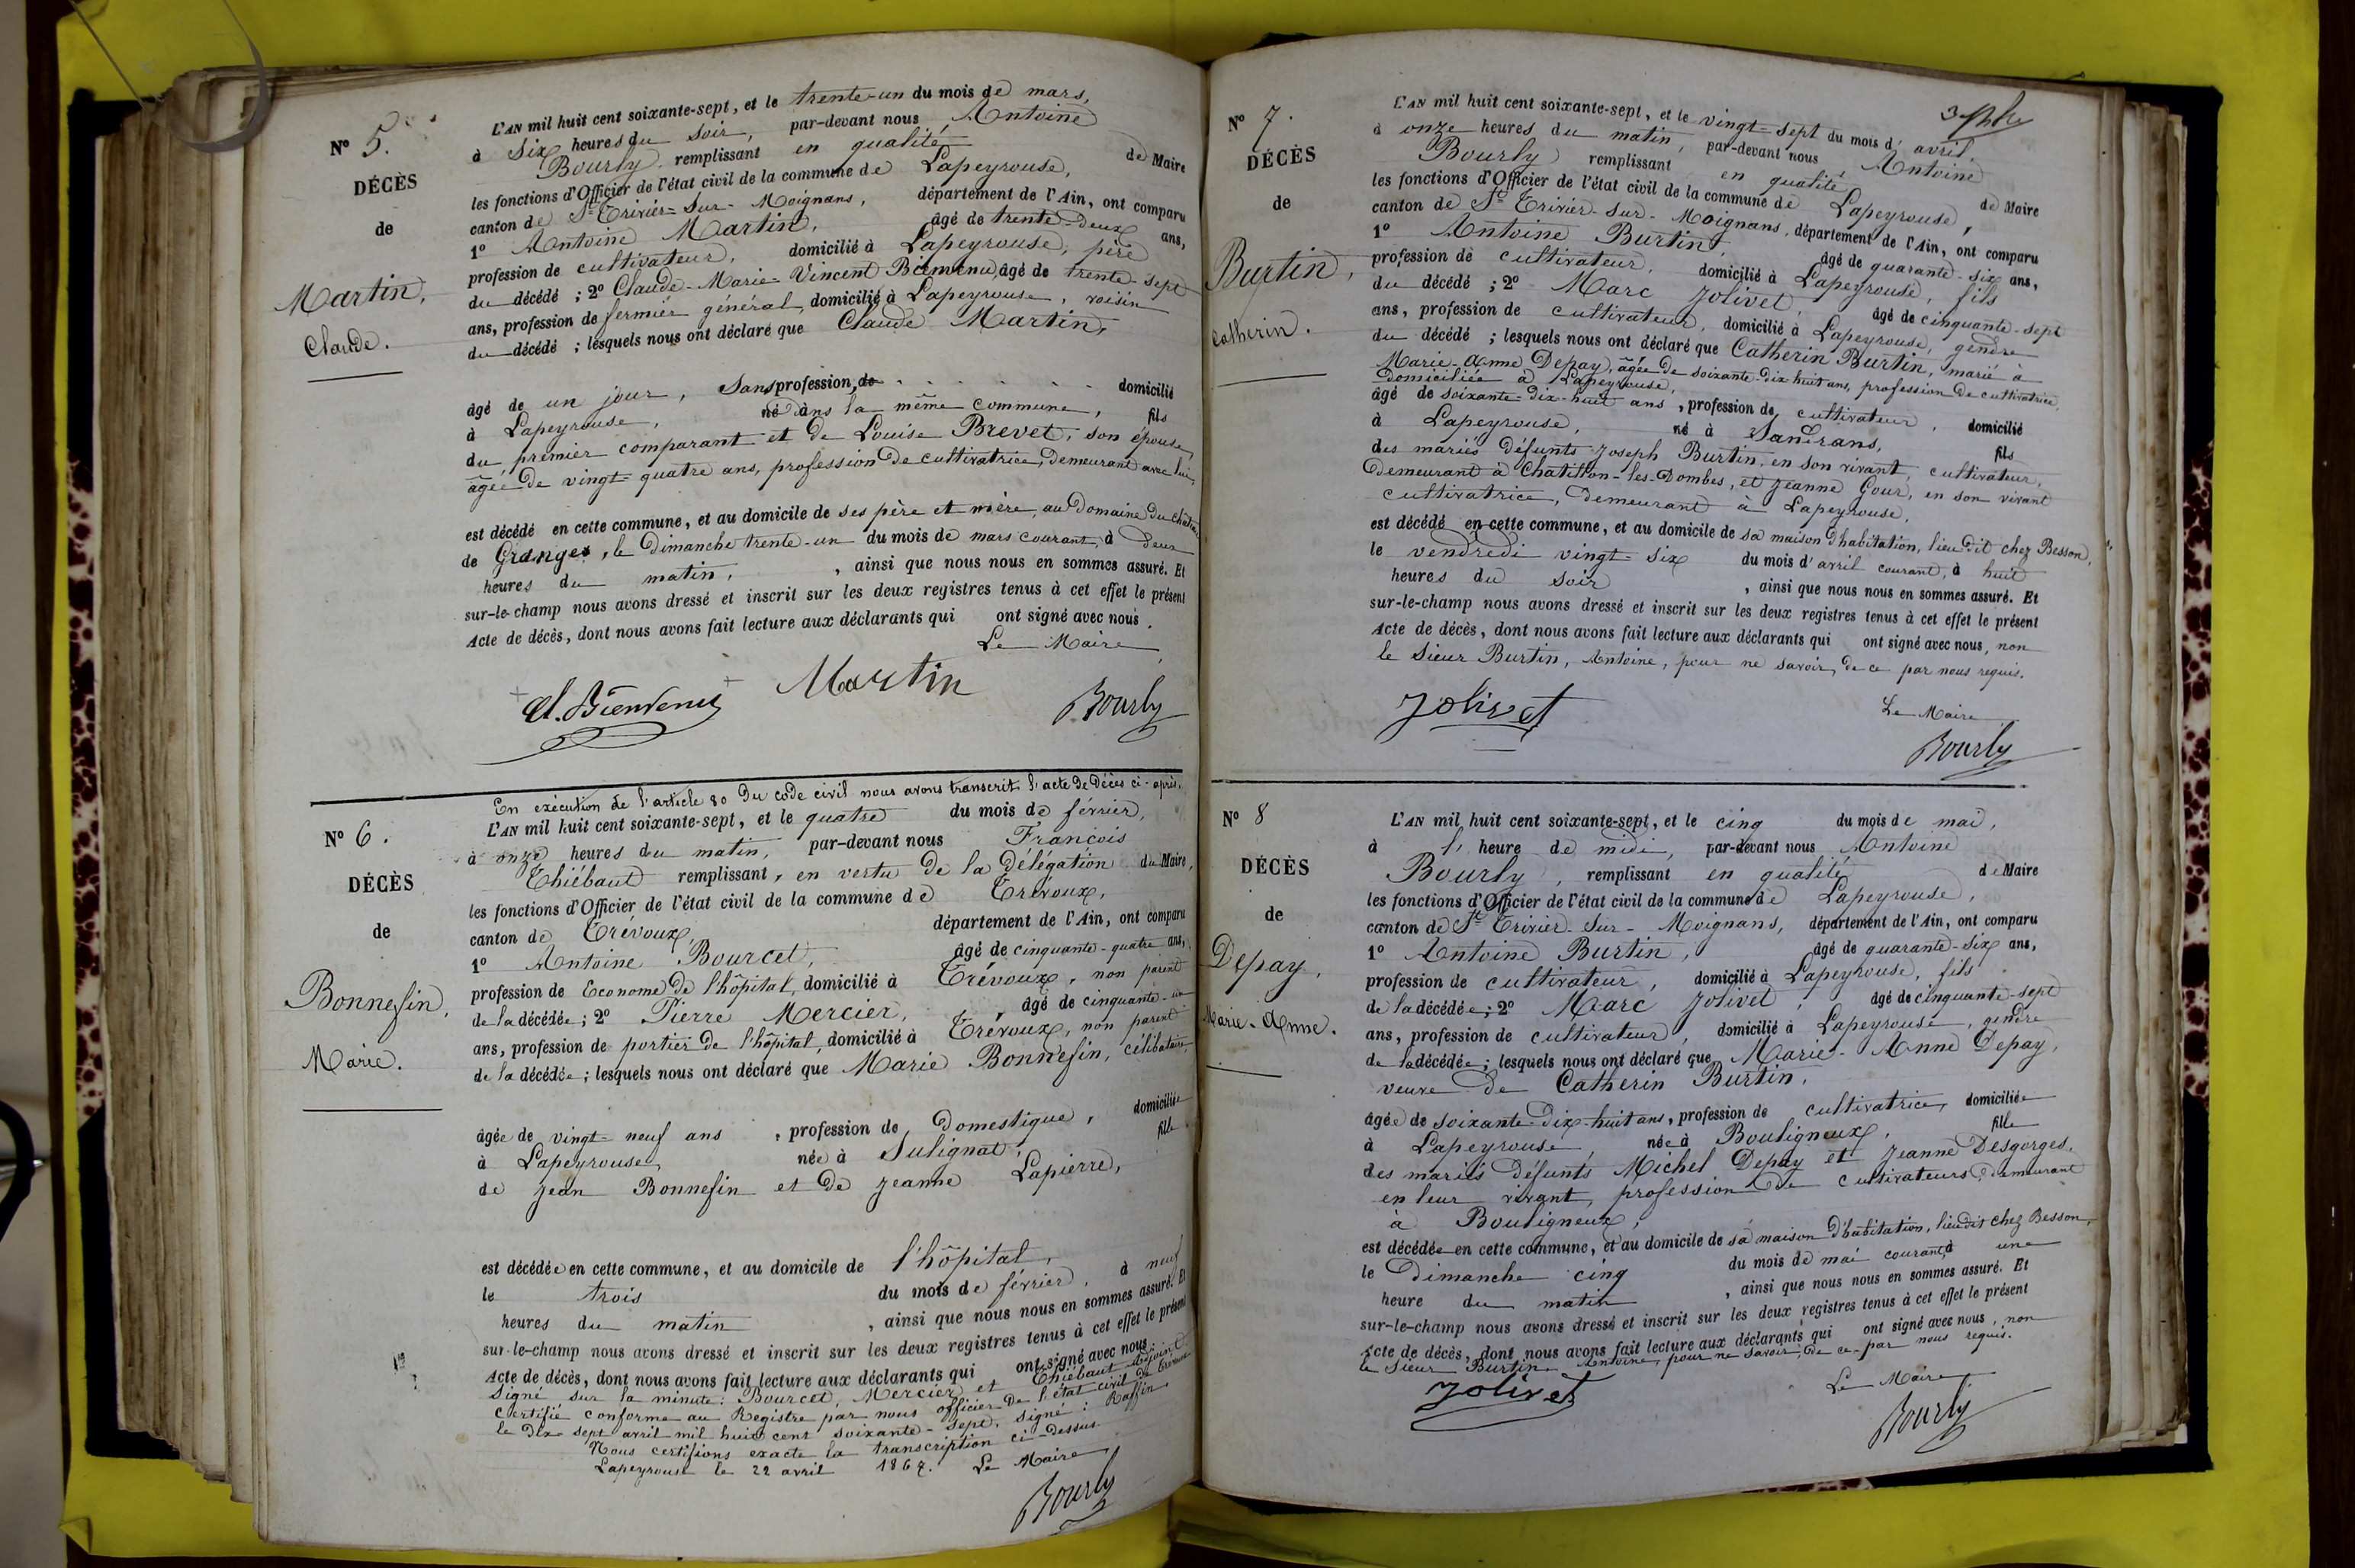 N° 5.
DÉCÈS
de
Martin,
Claude.
L'AN mil huit cent soixante-sept, et le trente-un du mois de mars,
à Six heures du soir, par-devant nous Antoine
Bourly remplissant en qualité de Maire
les fonctions d'Officier de l'état civil de la commune de Lapeyrouse,
canton de St Trivier-Sur-Moignans, département de l'Ain, ont comparu
1° Antoine Martin, âgé de trente-deux ans,
profession de cultivateur, domicilié à Lapeyrouse, père
du décédé ; 2° Claude-Marie-Vincent Bienvenu, âgé de trente-sept
ans, profession de fermier général, domicilié à Lapeyrouse, voisin
du décédé ; lesquels nous ont déclaré que Claude Martin,
âgé de un jour, Sans profession, de domicilié
à Lapeyrouse, né dans la même commune, fils
du premier comparant et de Louise Brevet, son épouse,
âgée de vingt-quatre ans, profession de cultivatrice, demeurant avec lui,
est décédé en cette commune, et au domicile de ses père et mère, au Domaine du
de Granges, le Dimanche trente-un du mois de mars courant, à deux
heures du matin, , ainsi que nous nous en sommes assuré. Et
sur-le-champ nous avons dressé et inscrit sur les deux registres tenus à cet effet le présent
Acte de décès, dont nous avons fait lecture aux déclarants qui ont signé avec nous.
Le Maire
Cl. Bienvenu Martin Bourly
En exécution de l'article 80 du code civil nous avons transcrit l'acte de Décès ci-après.
N° 6.
DÉCÈS
de
Bonnefin,
Marie.
L'AN mil huit cent soixante-sept, et le quatre du mois de février,
à onze heures du matin, par-devant nous François
Thiébaut remplissant, en vertu de la délégation du Maire,
les fonctions d'Officier de l'état civil de la commune de Trévoux,
canton de Trévoux, département de l'Ain, ont comparu
1° Antoine Bourcet, âgé de cinquante-quatre ans,
profession de Econome de l'hôpital, domicilié à Trévoux, non parent
de la décédée ; 2° Pierre Mercier, âgé de cinquante-un
ans, profession de portier de l'hôpital, domicilié à Trévoux, non parent
de la décédée ; lesquels nous ont déclaré que Marie Bonnefin, célibataire,
âgée de vingt-neuf ans , profession de Domestique, domiciliée
à Lapeyrouse, née à Sulignat, fille
de Jean Bonnefin et de Jeanne Lapierre,
est décédée en cette commune, et au domicile de l'hôpital,
le trois du mois de février, à neuf
heures du matin , ainsi que nous nous en sommes assuré. Et
sur-le-champ nous avons dressé et inscrit sur les deux registres tenus à cet effet le présent
Acte de décès, dont nous avons fait lecture aux déclarants qui ont signé avec nous.
Signé sur la minute : Bourcet, Mercier et Thiébaut Adjoint
Certifié conforme au Registre par nous officier de l'état civil de Trévoux
le Dix sept avril mil huit cent soixante-sept. Signé : Raffin
Nous certifions exacte la transcription ci-dessus
Lapeyrouse le 22 avril 1867. Le Maire
Bourly
N° 7.
DÉCÈS
de
Burtin,
Catherin.
L'AN mil huit cent soixante-sept, et le vingt-sept du mois d'avril,
à onze heures du matin, par-devant nous Antoine
Bourly remplissant en qualité de Maire
les fonctions d'Officier de l'état civil de la commune de Lapeyrouse,
canton de St Trivier-Sur-Moignans, département de l'Ain, ont comparu
1° Antoine Burtin, âgé de quarante-six ans,
profession de cultivateur, domicilié à Lapeyrouse, fils
du décédé ; 2° Marc Jolivet, âgé de cinquante-sept
ans, profession de cultivateur, domicilié à Lapeyrouse, gendre
du décédé ; lesquels nous ont déclaré que Catherin Burtin, marié à
Marie-Anne Depay, âgée de soixante-dix huit ans, profession de cultivatrice,
domiciliée à Lapeyrouse,
âgé de soixante-dix-huit ans, profession de cultivateur, domicilié
à Lapeyrouse, né à Sandrans, fils
des mariés défunts Joseph Burtin, en son vivant, cultivateur,
demeurant à Chatillon-les-Dombes, et Jeanne Gour, en son vivant
cultivatrice, demeurant à Lapeyrouse,
est décédé en cette commune, et au domicile de sa maison d'habitation, lieu dit chez Besson,
le vendredi vingt-six du mois d'avril courant, à huit
heures du soir , ainsi que nous nous en sommes assuré. Et
sur-le-champ nous avons dressé et inscrit sur les deux registres tenus à cet effet le présent
Acte de décès, dont nous avons fait lecture aux déclarants qui ont signé avec nous, non
le Sieur Burtin, Antoine, pour ne savoir, de ce par nous requis.
Jolivet
Le Maire
Bourly
N° 8
DÉCÈS
de
Depay,
Marie-Anne.
L'AN mil huit cent soixante-sept, et le cinq du mois de mai,
à l'heure de midi, par-devant nous Antoine
Bourly, remplissant en qualité de Maire
les fonctions d'Officier de l'état civil de la commune de Lapeyrouse,
canton de St Trivier-Sur-Moignans, département de l'Ain, ont comparu
1° Antoine Burtin, âgé de quarante-six ans,
profession de cultivateur, domicilié à Lapeyrouse, fils
de la décédée ; 2° Marc Jolivet, âgé de cinquante-sept
ans, profession de cultivateur, domicilié à Lapeyrouse, gendre
de la décédée ; lesquels nous ont déclaré que Marie-Anne Depay,
veuve de Catherin Burtin,
âgée de soixante-Dix-huit ans, profession de cultivatrice, domiciliée
à Lapeyrouse, née à Bouligneux, fille
des mariés défunts Michel Depay et Jeanne Desgorges,
en leur vivant, profession de cultivateurs, demeurant
à Bouligneux,
est décédée en cette commune, et au domicile de sa maison d'habitation, lieu dit chez Besson,
le Dimanche cinq du mois de mai courant, à une
heure du matin , ainsi que nous nous en sommes assuré. Et
sur-le-champ nous avons dressé et inscrit sur les deux registres tenus à cet effet le présent
Acte de décès, dont nous avons fait lecture aux déclarants qui ont signé avec nous, non
le Sieur Burtin Antoine, pour ne savoir, de ce par nous requis.
Jolivet
Le Maire
Bourly